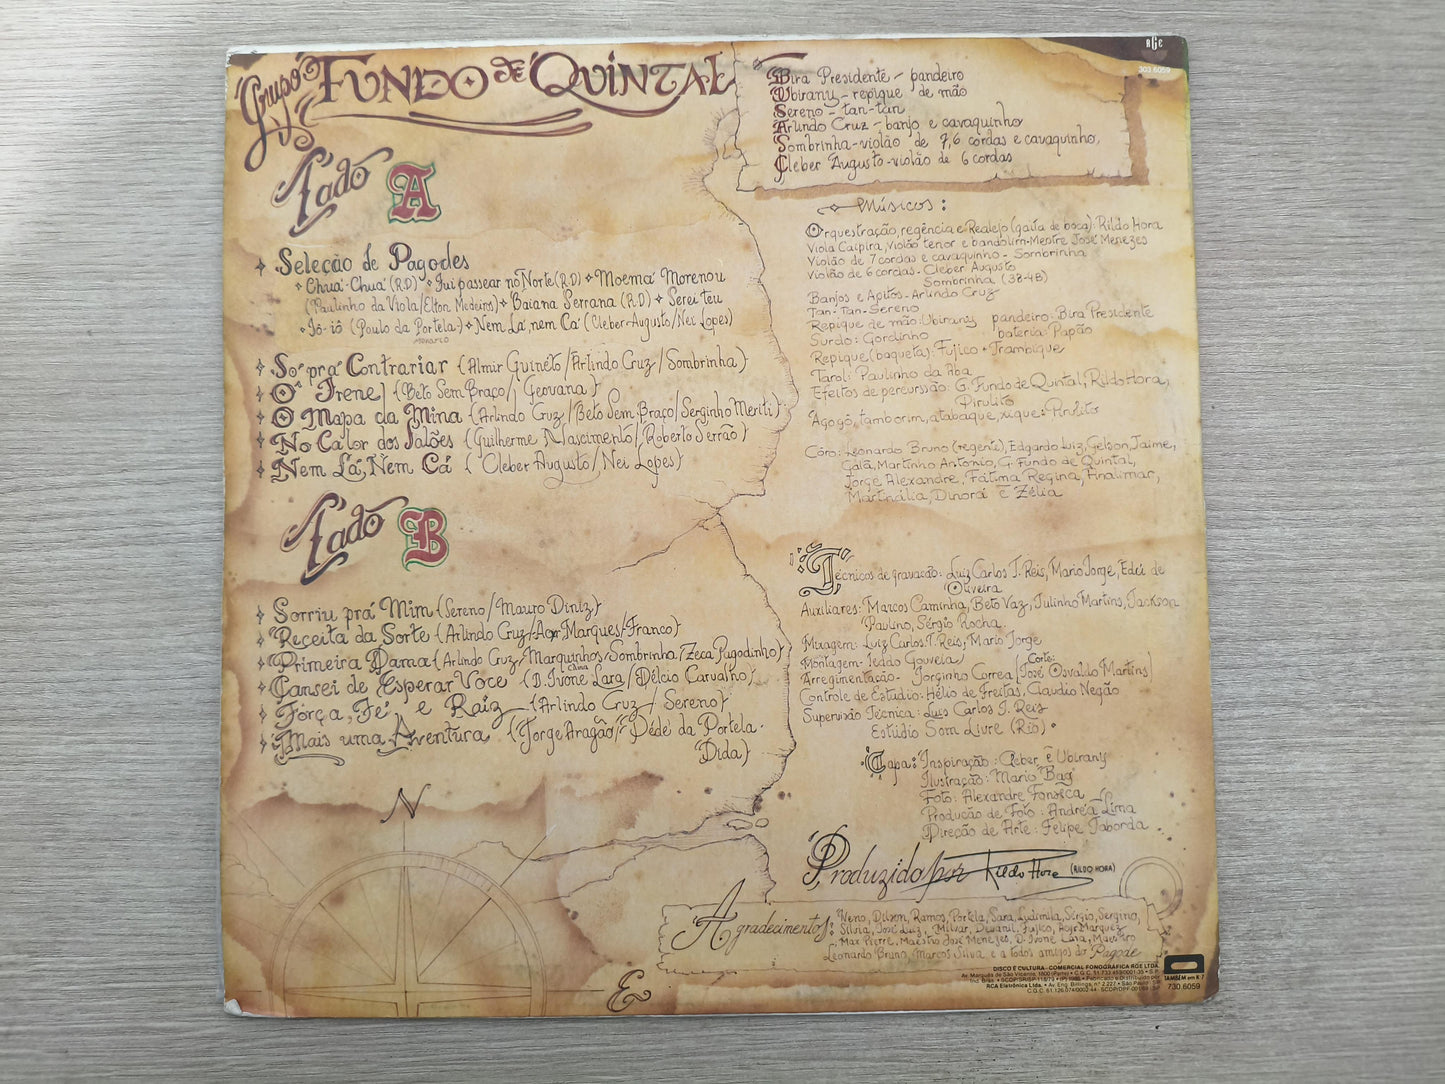 Grupo FUNDO DE QUINTAL
Lado A
Seleção de Pagodes
Chuá-Chuá (R.D) Fui passear no Norte (R.D) Moema Morenou
(Paulinho da Viola/Elton Medeiros) Baiana Serrana (R.D) Serei teu
Iô-iô (Paulo da Portela) Nem Lá, nem Cá (Cleber Augusto/Nei Lopes)
MONARCO
Só prá Contrariar (Almir Guinéto/Arlindo Cruz/Sombrinha)
Ô Irene (Beto Sem Braço/Geovana)
O Mapa da Mina (Arlindo Cruz/Beto Sem Braço/Serginho Meriti)
No Calor dos Salões (Guilherme Nascimento/Roberto Serrão)
Nem Lá, Nem Cá (Cleber Augusto/Nei Lopes)
Lado B
Sorriu prá Mim (Sereno/Mauro Diniz)
Receita da Sorte (Arlindo Cruz/Acyr Marques/Franco)
Primeira Dama (Arlindo Cruz/Marquinhos/Sombrinha/Zeca Pagodinho)
Cansei de Esperar Você (D. Ivone Lara/Délcio Carvalho)
Força, Fé e Raiz (Arlindo Cruz/Sereno)
Mais uma Aventura (Jorge Aragão/Dédé da Portela
Dida)
N
E
Bira Presidente - pandeiro
Ubirany - repique de mão
Sereno - tan-tan
Arlindo Cruz - banjo e cavaquinho
Sombrinha - violão de 7,6 cordas e cavaquinho,
Cleber Augusto - violão de 6 cordas
RGE
303.6059
Músicos:
Orquestração, regência e Realejo (gaita de boca): Rildo Hora
Viola Caipira, violão tenor e bandolim - Mestre José Menezes
Violão de 7 cordas e cavaquinho - Sombrinha
Violão de 6 cordas - Cleber Augusto
Sombrinha (3B-4B)
Banjos e Apitos - Arlindo Cruz
Tan-Tan - Sereno
Repique de mão: Ubirany pandeiro: Bira Presidente
Surdo: Gordinho bateria: Papão
Repique (baqueta): Fujico + Trambique
Tarol: Paulinho da Aba
Efeitos de percussão: G. Fundo de Quintal, Rildo Hora,
Pirulito
Agogô, tamborim, atabaque, xique: Pirulito
Côro: Leonardo Bruno (regente), Edgardo Luiz, Gelson, Jaime,
Galã, Martinho Antonio, G. Fundo de Quintal,
Jorge Alexandre, Fátima Regina, Analimar,
Martinália, Dinorá e Zélia
Técnicos de gravação: Luiz Carlos T. Reis, Mario Jorge, Edeí de
Oliveira
Auxiliares: Marcos Caminha, Beto Vaz, Julinho Martins, Jackson
Paulino, Sérgio Rocha.
Mixagem: Luiz Carlos T. Reis, Mario Jorge
Montagem - Ieddo Gouveia
Arregimentação - Jorginho Correa (Corte: José Osvaldo Martins)
Controle de Estúdio: Hélio de Freitas, Claudio Negão
Supervisão Técnica: Luis Carlos T. Reis
Estúdio Som Livre (Rio)
Capa: Inspiração: Cleber e Ubirany
Ilustração: Mario Bag
Foto: Alexandre Fonseca
Produção de Foto: Andréa Lima
Direção de Arte: Felipe Taborda
Produzido por Rildo Hora (RILDO HORA)
Agradecimentos: Neno, Dilson, Ramos, Portela, Sara, Ludimila, Sérgio, Sergino,
Silvia, José Luiz, Milvar, Devanil, Fujico, Acyr Marquez
Max Pierre, Maestro José Menezes, D. Ivone Lara, Maestro
Leonardo Bruno, Marcos Silva e a todos amigos do Pagode
DISCO É CULTURA COMERCIAL FONOGRÁFICA RGE LTDA.
RCA Eletrônica Ltda. • Av. Eng. Billings, nº 2.227 • São Paulo SP
TAMBÉM em K 7
730.6059